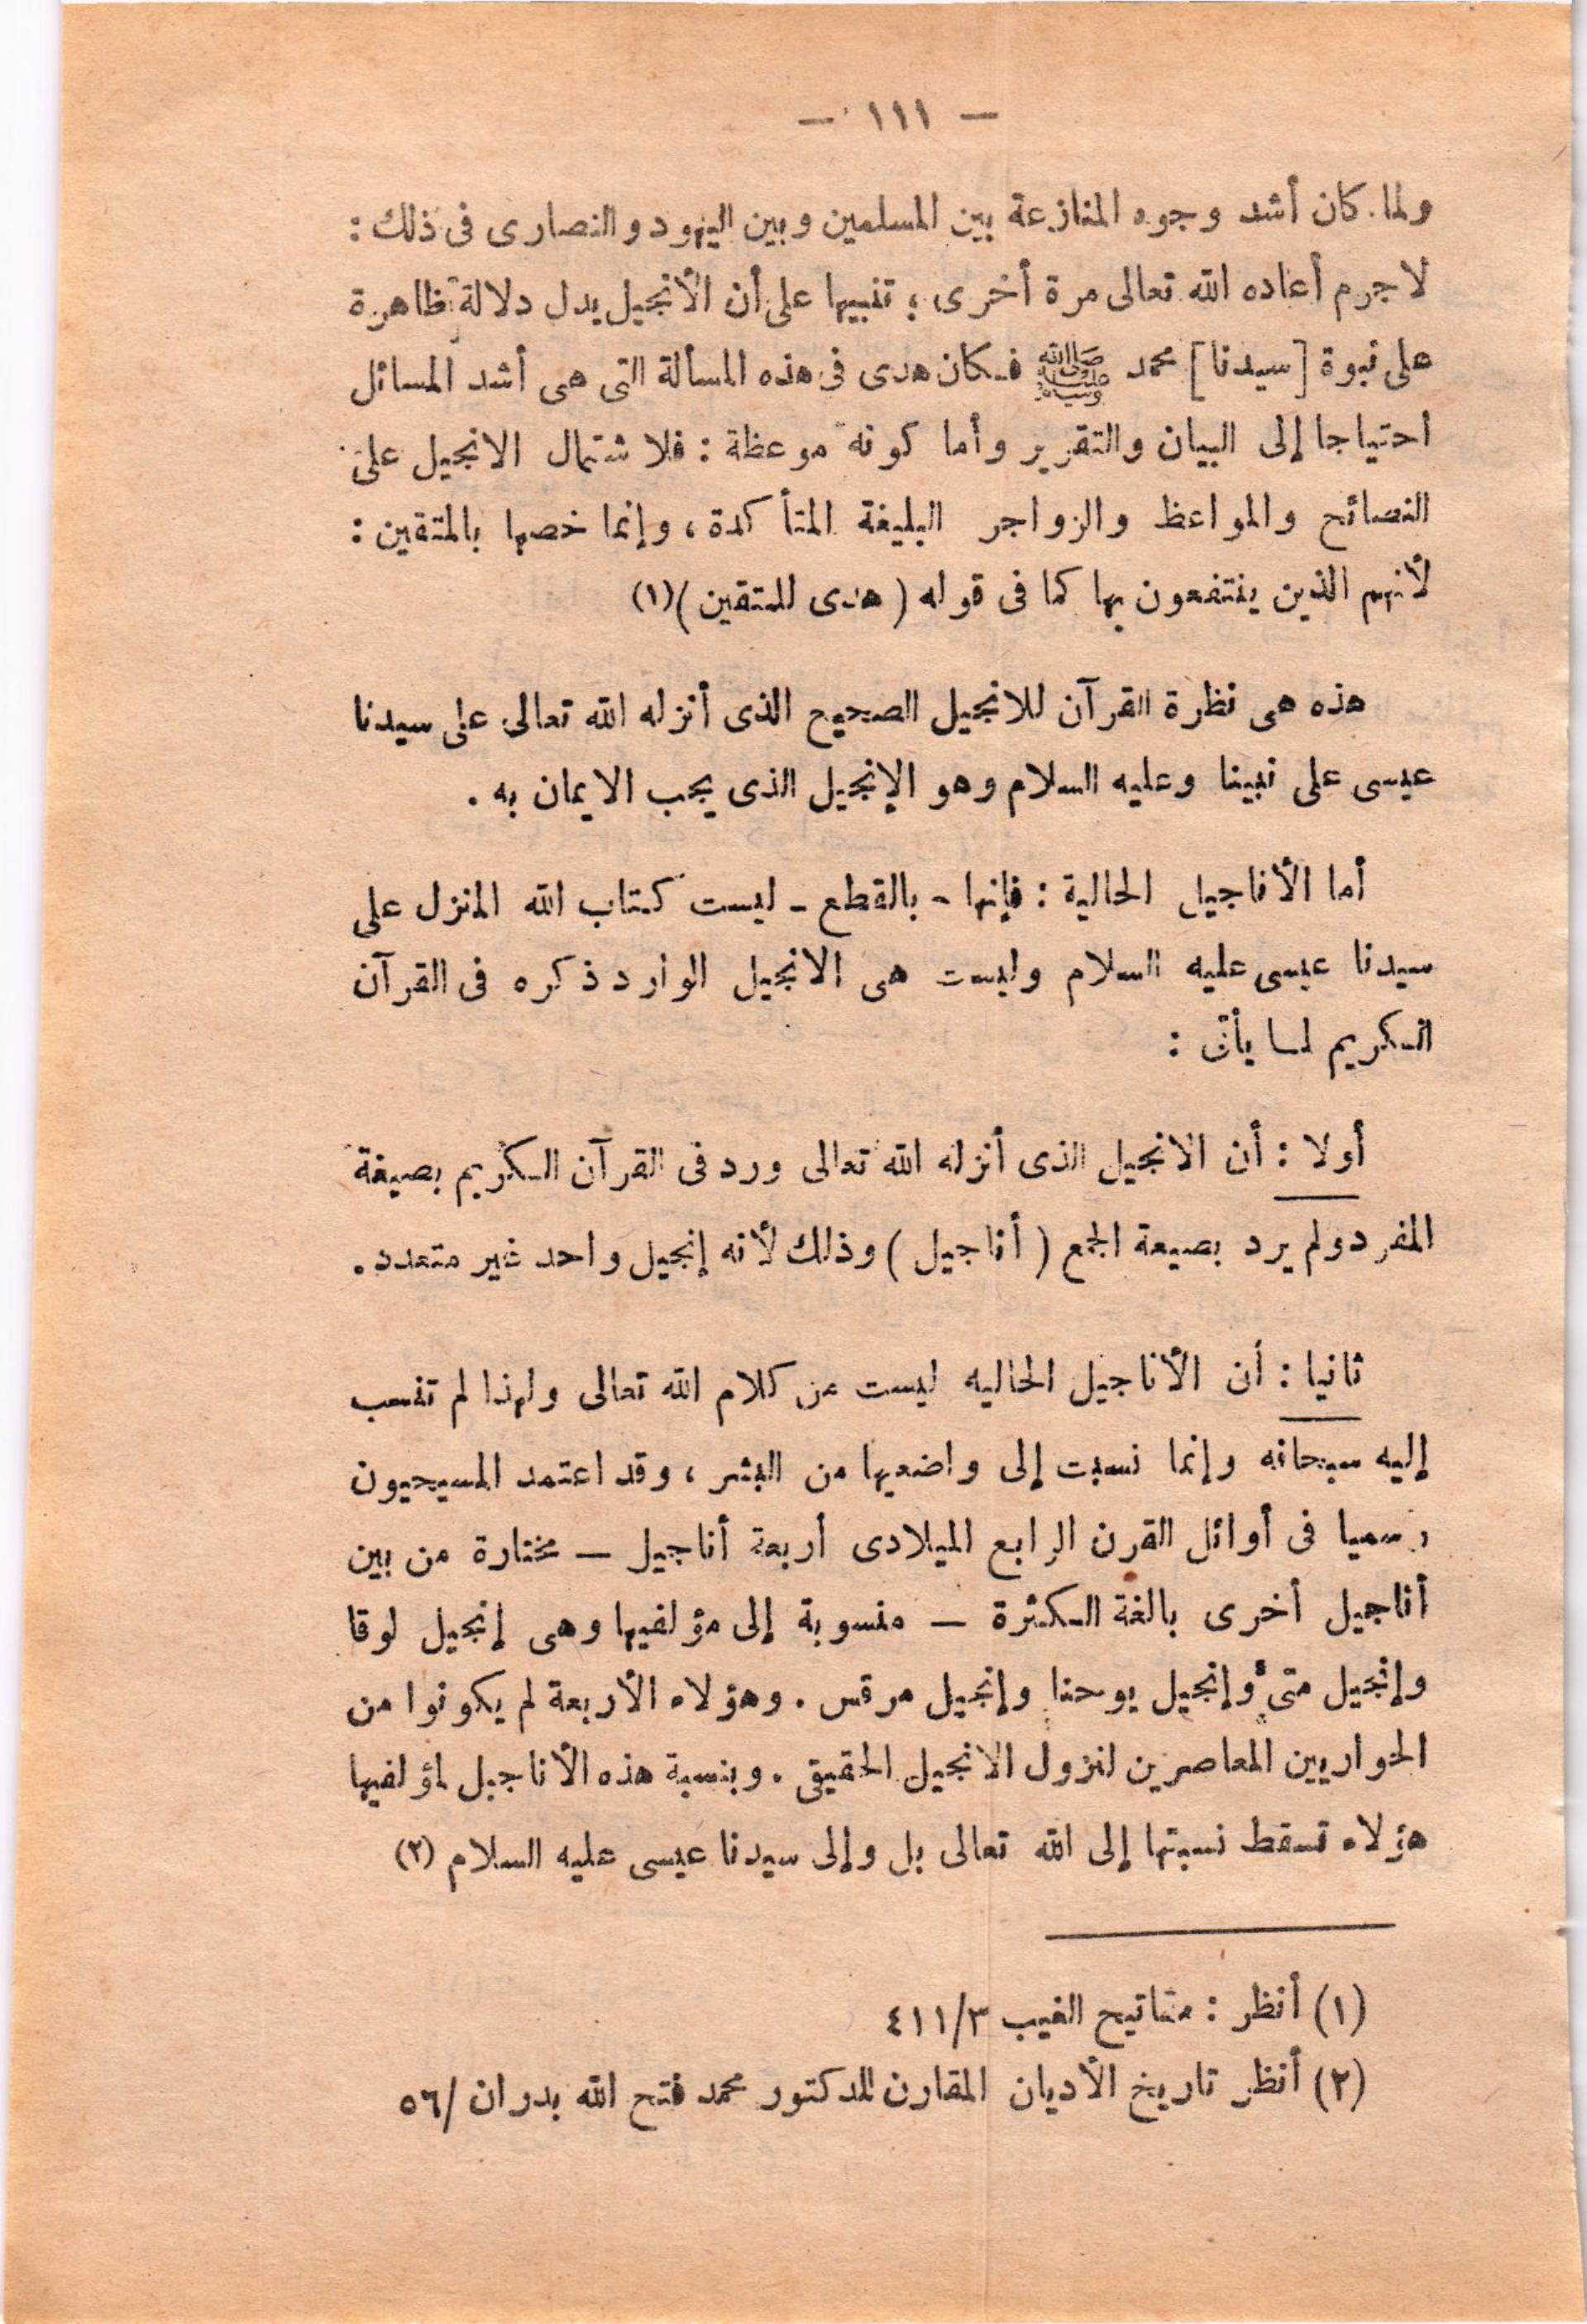 — ١١١ —
ولما كان أشد وجوه المنازعة بين المسلمين وبين اليهود والنصارى فى ذلك :
لا جرم أعاده الله تعالى مرة أخرى ؛ تنبيها على أن الأنجيل يدل دلالة ظاهرة
على نبوة [سيدنا] محمد ﷺ فكان هدى فى هذه المسألة التى هى أشد المسائل
احتياجا إلى البيان والتقرير وأما كونه موعظة : فلاشتمال الانجيل على
النصائح والمواعظ والزواجر البليغة المتأكدة ، وإنما خصها بالمتقين :
لأنهم الذين ينتفعون بها كما فى قوله ( هدى للمتقين )(١)
هذه هى نظرة القرآن للانجيل الصحيح الذى أنزله الله تعالى على سيدنا
عيسى على نبينا وعليه السلام وهو الإنجيل الذى يجب الايمان به .
أما الأناجيل الحالية : فإنها - بالقطع - ليست كتاب الله المنزل على
سيدنا عيسى عليه السلام وليست هى الانجيل الوارد ذكره فى القرآن
الكريم لما يأتى :
أولا : أن الانجيل الذى أنزله الله تعالى ورد فى القرآن الكريم بصيغة
المفرد ولم يرد بصيعة الجمع ( أناجيل ) وذلك لأنه إنجيل واحد غير متعدد .
ثانيا : أن الأناجيل الحاليه ليست من كلام الله تعالى ولهذا لم تنسب
إليه سبحانه وإنما نسبت إلى واضعيها من البشر ، وقد اعتمد المسيحيون
رسميا فى أوائل القرن الرابع الميلادى أربعة أناجيل — مختارة من بين
أناجيل أخرى بالغة الكثرة — منسوبة إلى مؤلفيها وهى إنجيل لوقا
وإنجيل متى وإنجيل يوحنا وإنجيل مرقس . وهؤلاء الأربعة لم يكونوا من
الحواريين المعاصرين لنزول الانجيل الحقيقى . وبنسبة هذه الأناجيل لمؤلفيها
هؤلاء تسقط نسبتها إلى الله تعالى بل وإلى سيدنا عيسى عليه السلام (٢)
(١) أنظر : مفاتيح الغيب ٤١١/٣
(٢) أنظر تاريخ الأديان المقارن للدكتور محمد فتح الله بدران /٥٦